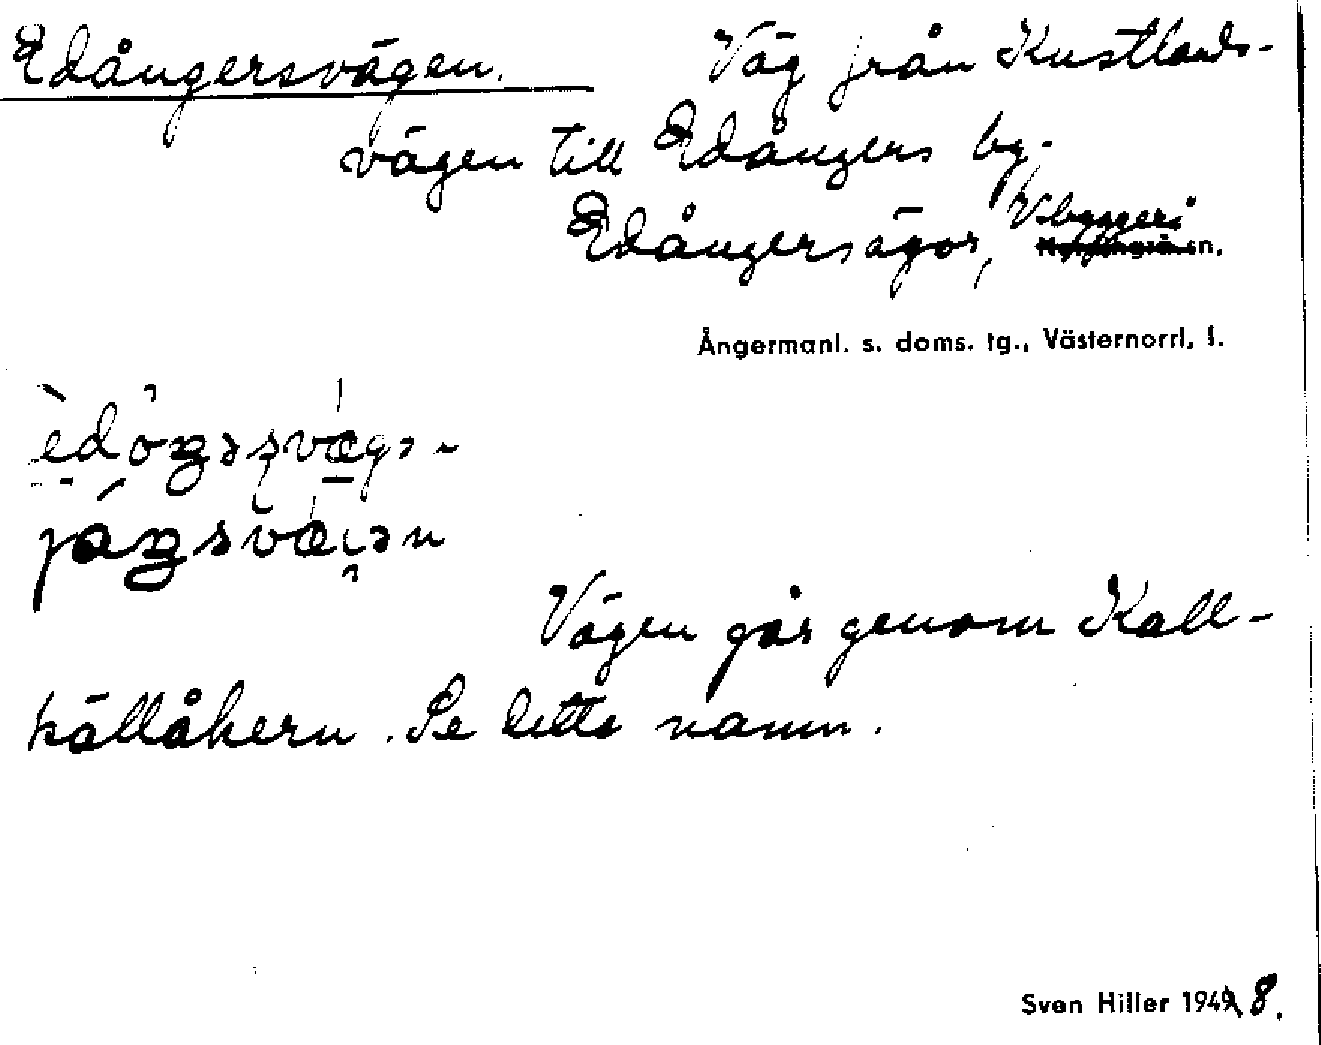 Edångersvägen. Väg från Kustlands-
vägen till Edångers by.
Edångers ägor, Vibyggerå sn.
Ångermanl. s. doms. tg., Västernorrl. l.
Vägen går genom Kall-
källåkern. Se detta namn.
Sven Hiller 1948.